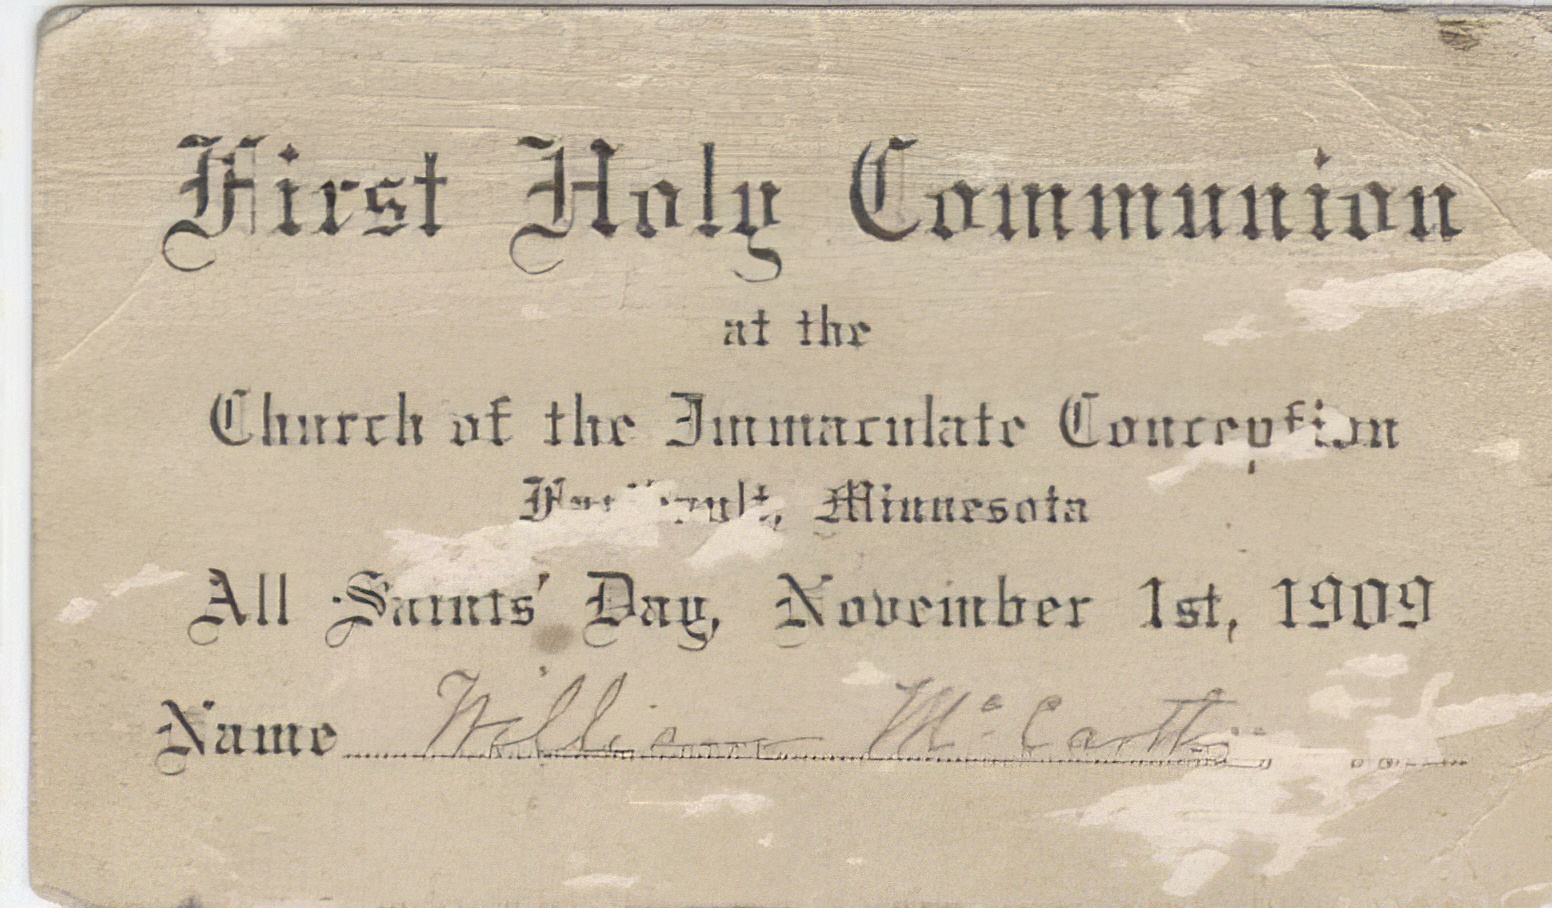 First Holy Communion
at the
Church of the Immaculate Conception
Faribault, Minnesota
All Saints' Day, November 1st, 1909
Name William Mc Carthy